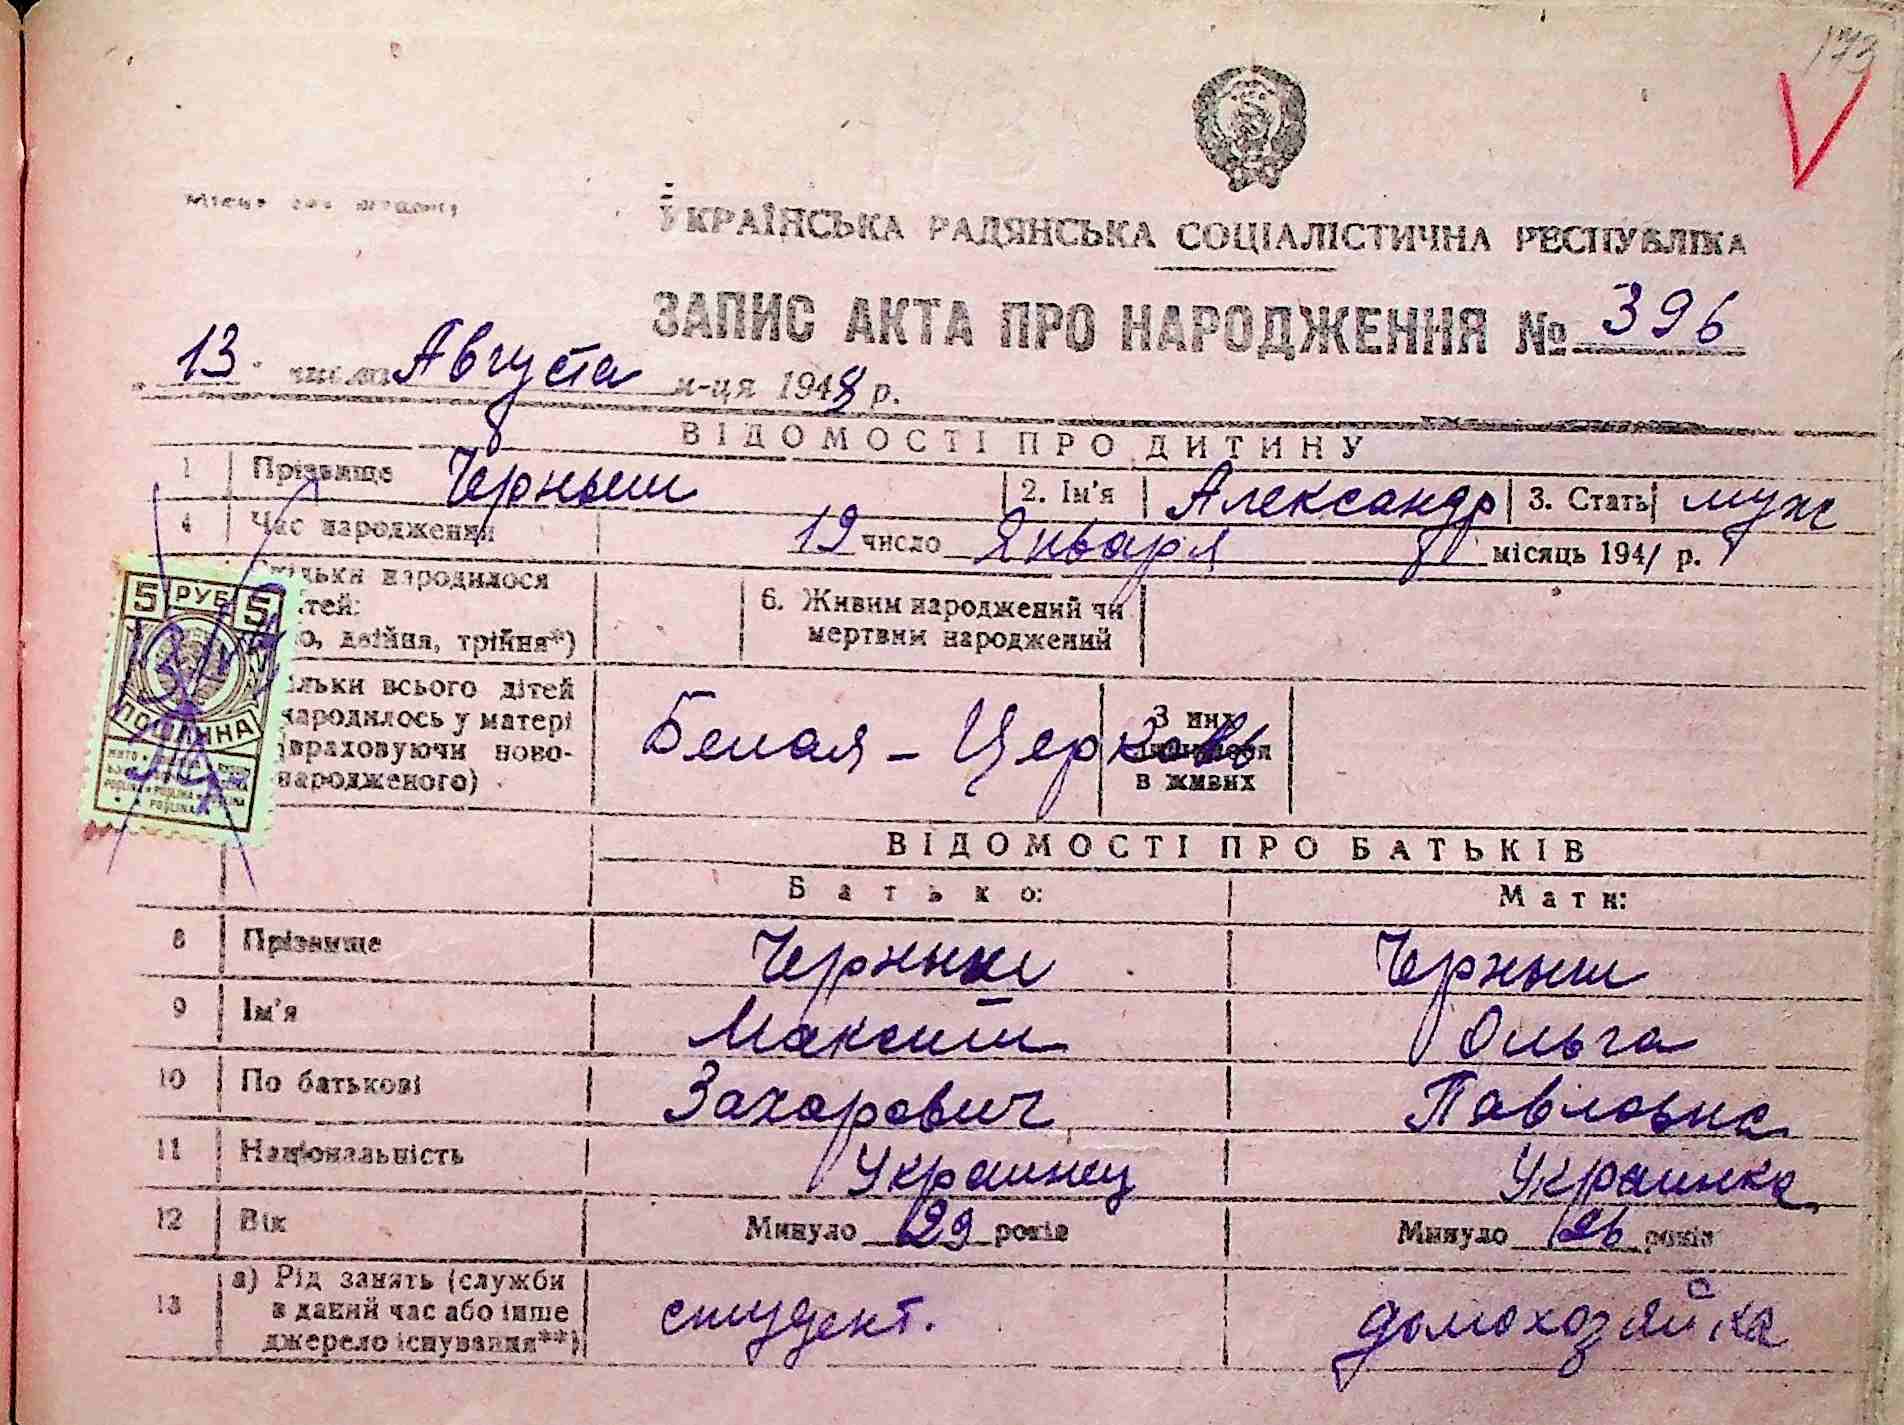 173
Місце для штампу
УКРАЇНСЬКА РАДЯНСЬКА СОЦІАЛІСТИЧНА РЕСПУБЛІКА
ЗАПИС АКТА ПРО НАРОДЖЕННЯ № 396
„13" числа Августа м-ця 1948 р.
ВІДОМОСТІ ПРО ДИТИНУ
1 Прізвище Черныш 2. Ім'я Александр 3. Стать муж
4 Час народження 19 число Января місяць 1941 р.
Скільки народилося
тей:
о, двійня, трійня*)
6. Живим народжений чи
мертвим народжений
ільки всього дітей
народилось у матері
(враховуючи ново-
народженого)
Белая - Церковь
З них
в живих
5 РУБ 5
ВІДОМОСТІ ПРО БАТЬКІВ
Батько: Мати:
8 Прізвище Черныш Черныш
9 Ім'я Максим Ольга
10 По батькові Захарович Павловна
11 Національність Украинец Украинка
12 Вік Минуло 29 років Минуло 26 років
13 а) Рід занять (служби
в даний час або інше
джерело існування**)
студент. домохозяйка